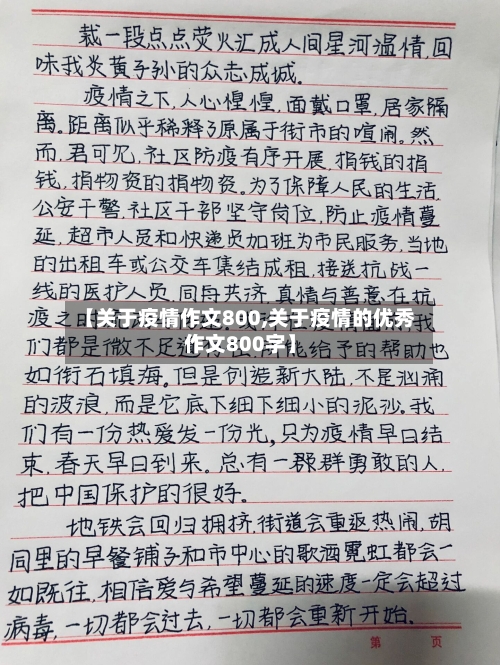 裁一段点点荧火汇成人间星河温情,回
味我炎黄子孙的众志成城。
疫情之下,人心惶惶,面戴口罩,居家隔
离。距离似乎稀释了原属于街市的喧闹。然
而,君可见,社区防疫有序开展,捐钱的捐
钱,捐物资的捐物资。为了保障人民的生活,
公安干警,社区干部坚守岗位,防止疫情蔓
延,超市人员和快递员加班为市民服务,当地
的出租车或公交车集结成租,接送抗战一
线的医护人员,同舟共济,真情与善意在抗
疫之
【关于疫情作文800,关于疫情的优秀
我
们都是微不足
能给予的帮助也
作文800字】
如衔石填海。但是创造新大陆,不是汹涌
的波浪,而是它底下细下细小的泥沙。我
们有一份热爱发一份光,只为疫情早日结
束,春天早日到来。总有一群群勇敢的人,
把中国保护的很好。
地铁会回归拥挤,街道会重返热闹,胡
同里的早餐铺子和市中心的歌酒霓虹都会一
如既往,相信爱与希望蔓延的速度一定会超过
病毒,一切都会过去,一切都会重新开始.
第 页